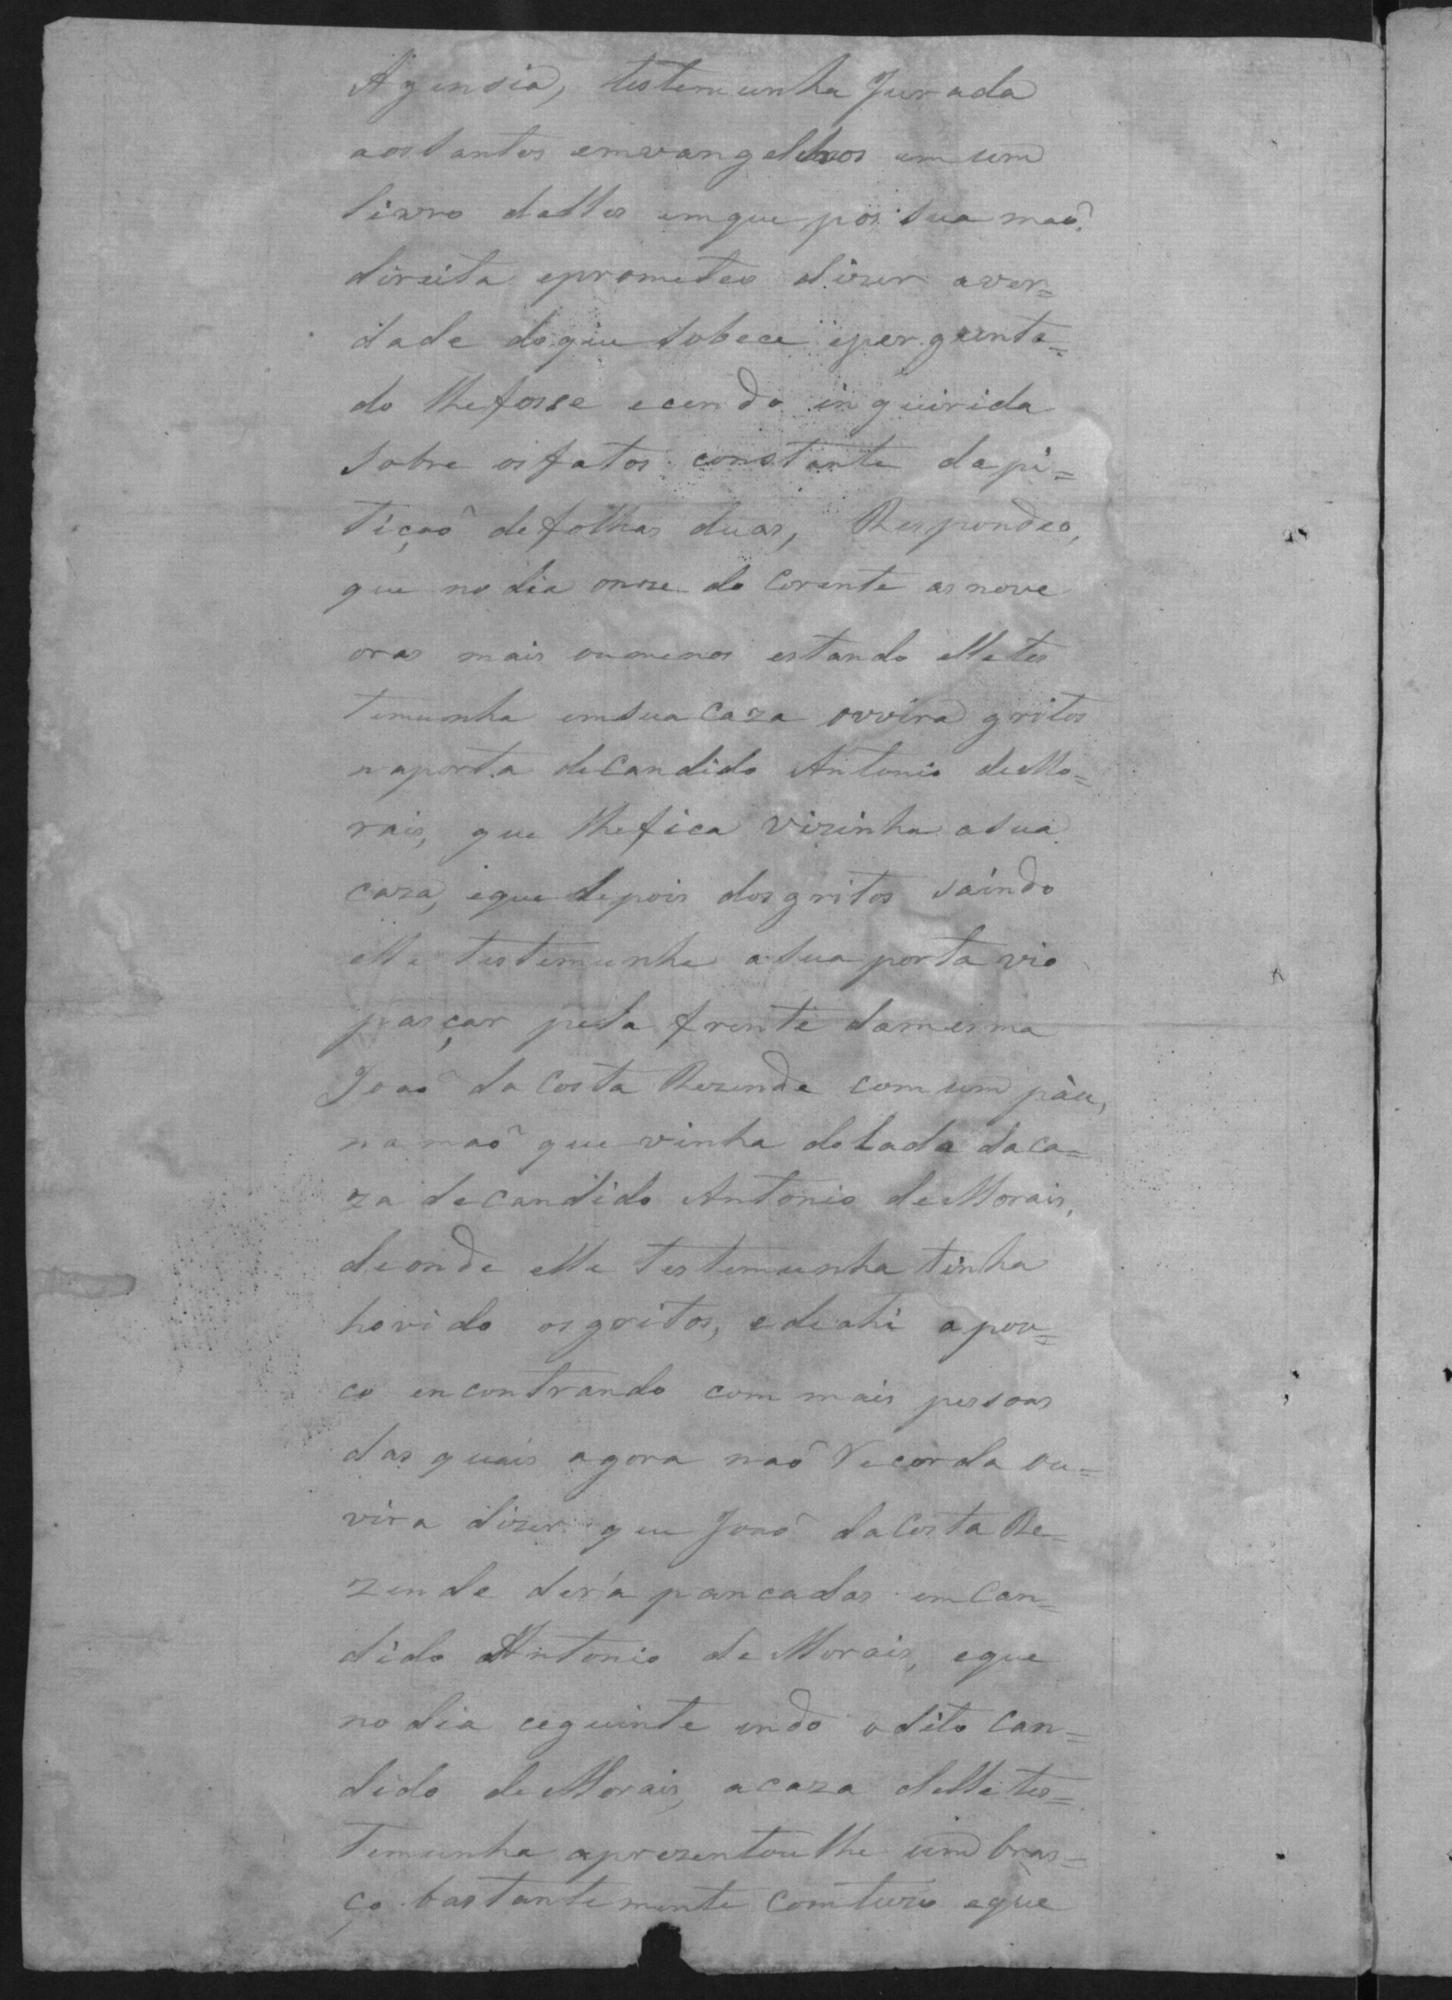 Agensia, testemunha Jurada
aos Santos emvangelhos em um
livro delles emque pos sua maõ
direita eprometeo dizer aver=
dade doque sobece eperguunta=
do lhe fosse ecendo inquirida
sobre os fatos constante dapi=
tiçaõ defolhas duas, Respondeo,
que no dia onze do Corente as nove
oras mais oumenos estando elle tes
temunha emsua Caza ovvira gritos
naporta deCandido Antonio deMo=
rais, que lhefica vizinha asua
caza, eque depois dos gritos saindo
elle testemunha a sua porta vio
pasçar pela frente damesma
Joaõ da Costa Rezende com um páu,
na maõ que vinha dolado da ca=
za de candido Antonio de Morais,
de onde elle testemunha tinha
hovido os gritos, edeahi apou=
co encontrando com mais pessoas
das quais agora naõ Recorda ou=
vira dizer que Joaõ da Costa Re=
zende dera pancadas em Can=
dido Antonio de Morais, eque
no dia ceguinte indo odito Can=
dido de Morais, acaza delle tes=
temunha aprezentou lhe um bras=
ço bastantemente Comtuzo eque